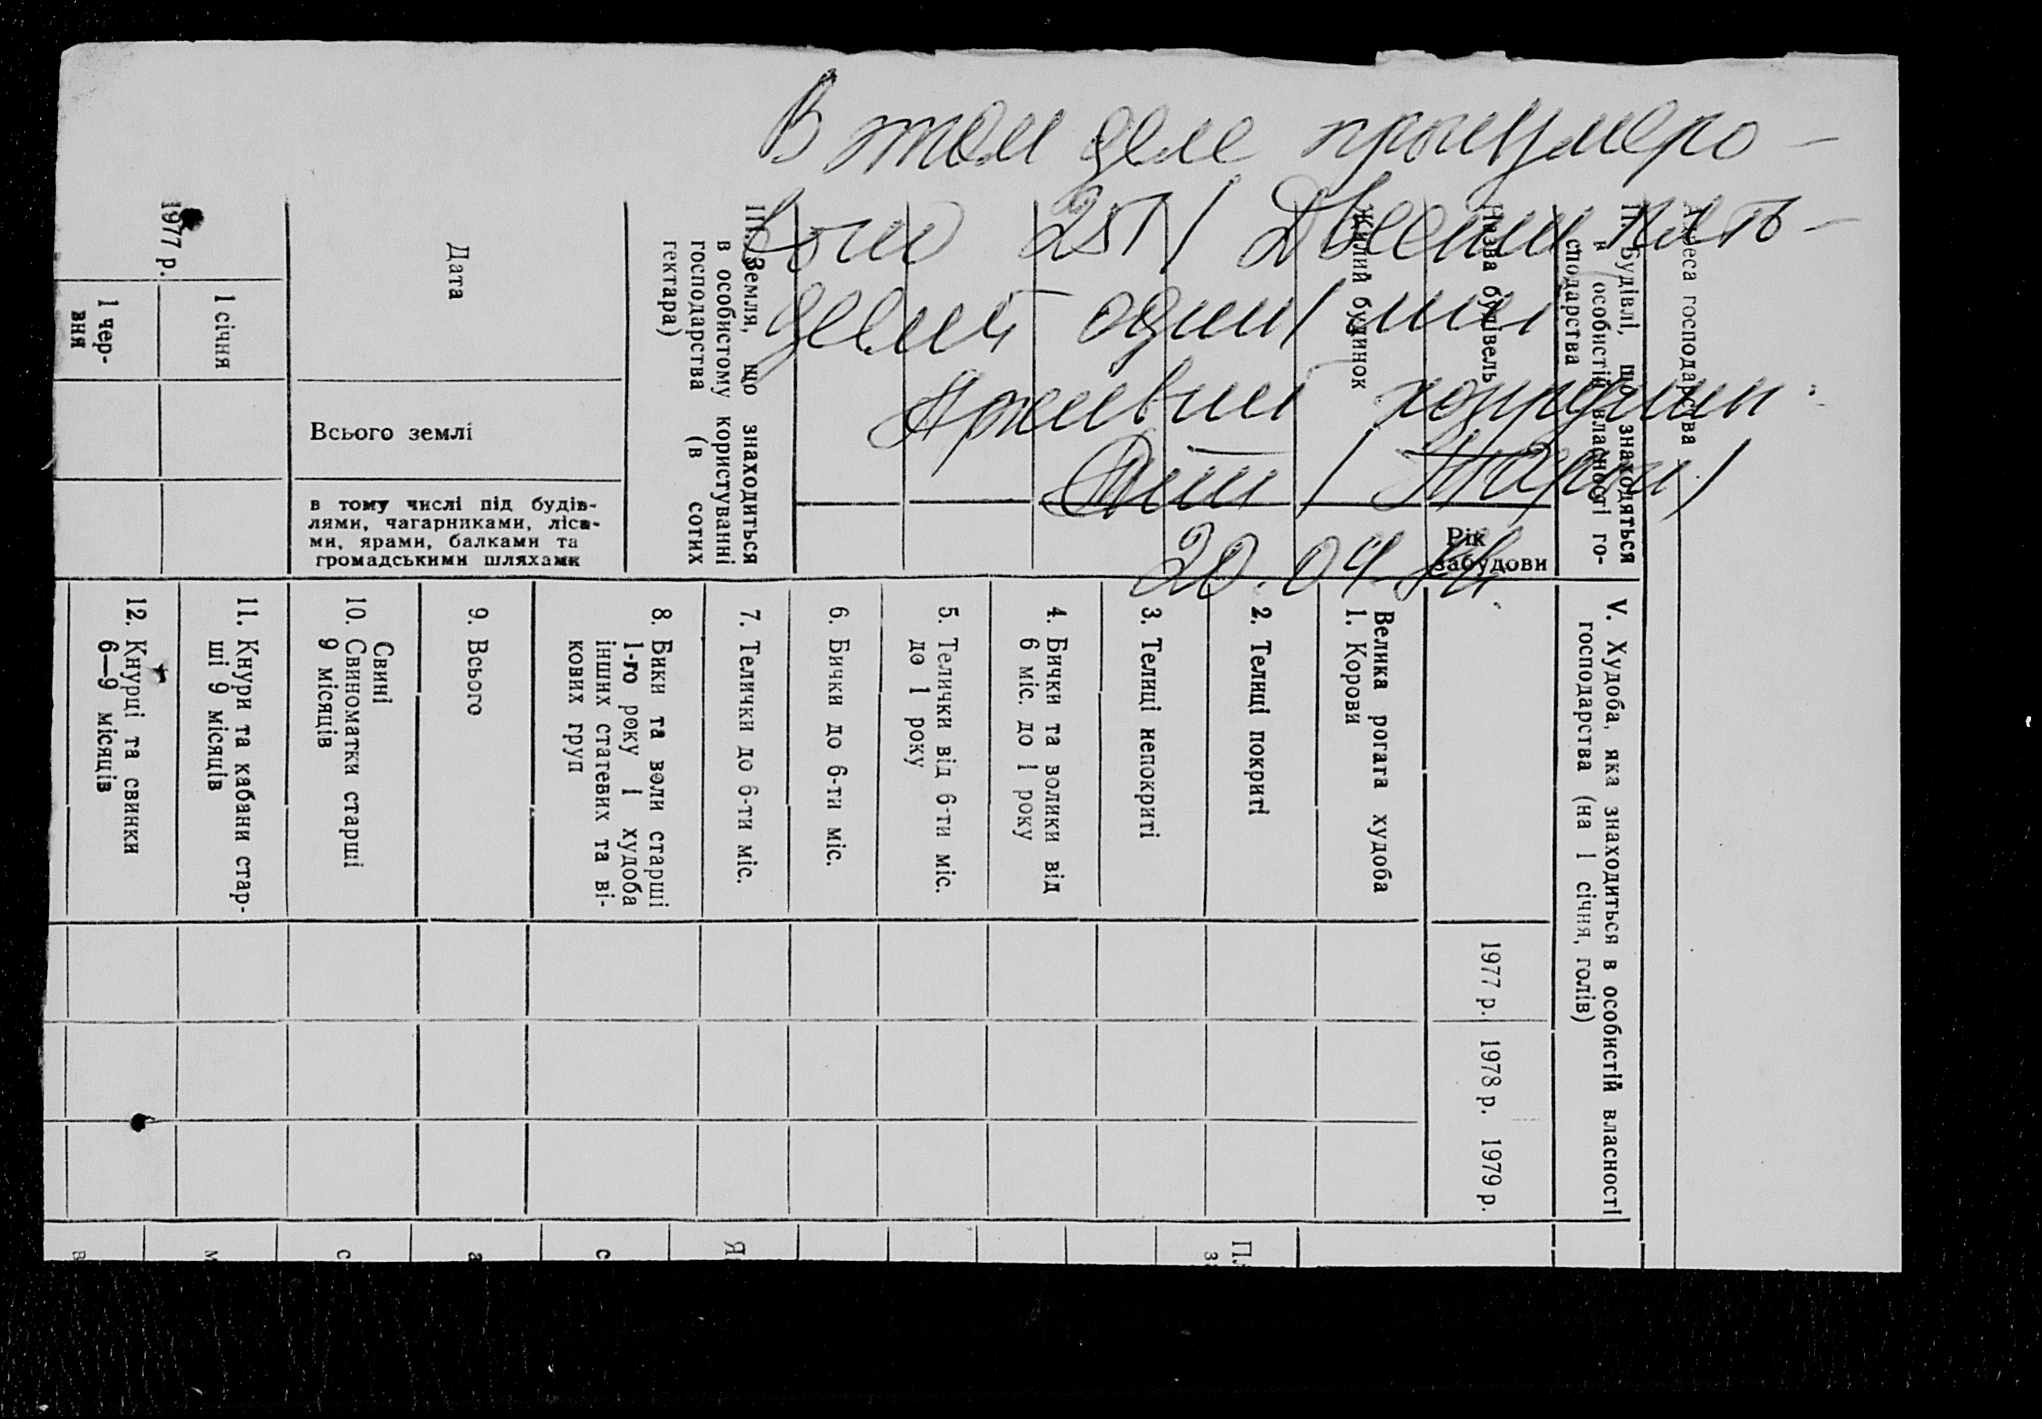 В этом деле пронумеро-
вано 251 / Двести пять-
десят один /
20.04.
Адреса господарства
II. Будівлі, що знаходяться
в особистій власності го-
сподарства
Назва будівель
Рік
забудови
Жилий будинок
III. Земля, що знаходиться
в особистому користуванні
господарства (в сотих
гектара)
Дата
Всього землі
в тому числі під будів-
лями, чагарниками, ліса-
ми, ярами, балками та
громадськими шляхами
1977 р.
1 січня
1 чер-
вня
V. Худоба, яка знаходиться в особистій власності
господарства (на 1 січня, голів)
1977 р.
1978 р.
1979 р.
Велика рогата худоба
1. Корови
2. Телиці покриті
3. Телиці непокриті
4. Бички та волики від
6 міс. до 1 року
5. Телички від 6-ти міс.
до 1 року
6. Бички до 6-ти міс.
7. Телички до 6-ти міс.
8. Бики та воли старші
1-го року і худоба
інших статевих та ві-
кових груп
9. Всього
Свині
10. Свиноматки старші
9 місяців
11. Кнури та кабани стар-
ші 9 місяців
12. Кнурці та свинки
6—9 місяців